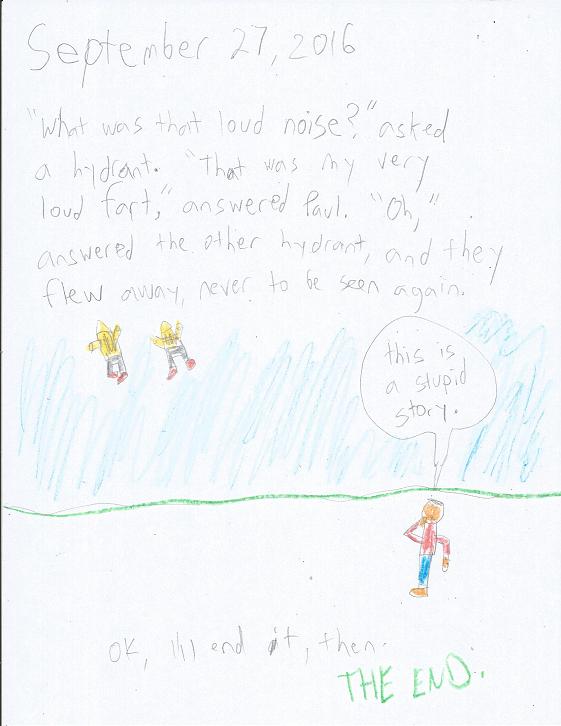 September 27, 2016
"What was that loud noise?" asked
a hydrant. "That was my very
loud fart," answered Paul. "Oh,"
answered the other hydrant, and they
flew away, never to be seen again.
this is
a stupid
story.
OK, I'll end it, then.
THE END.